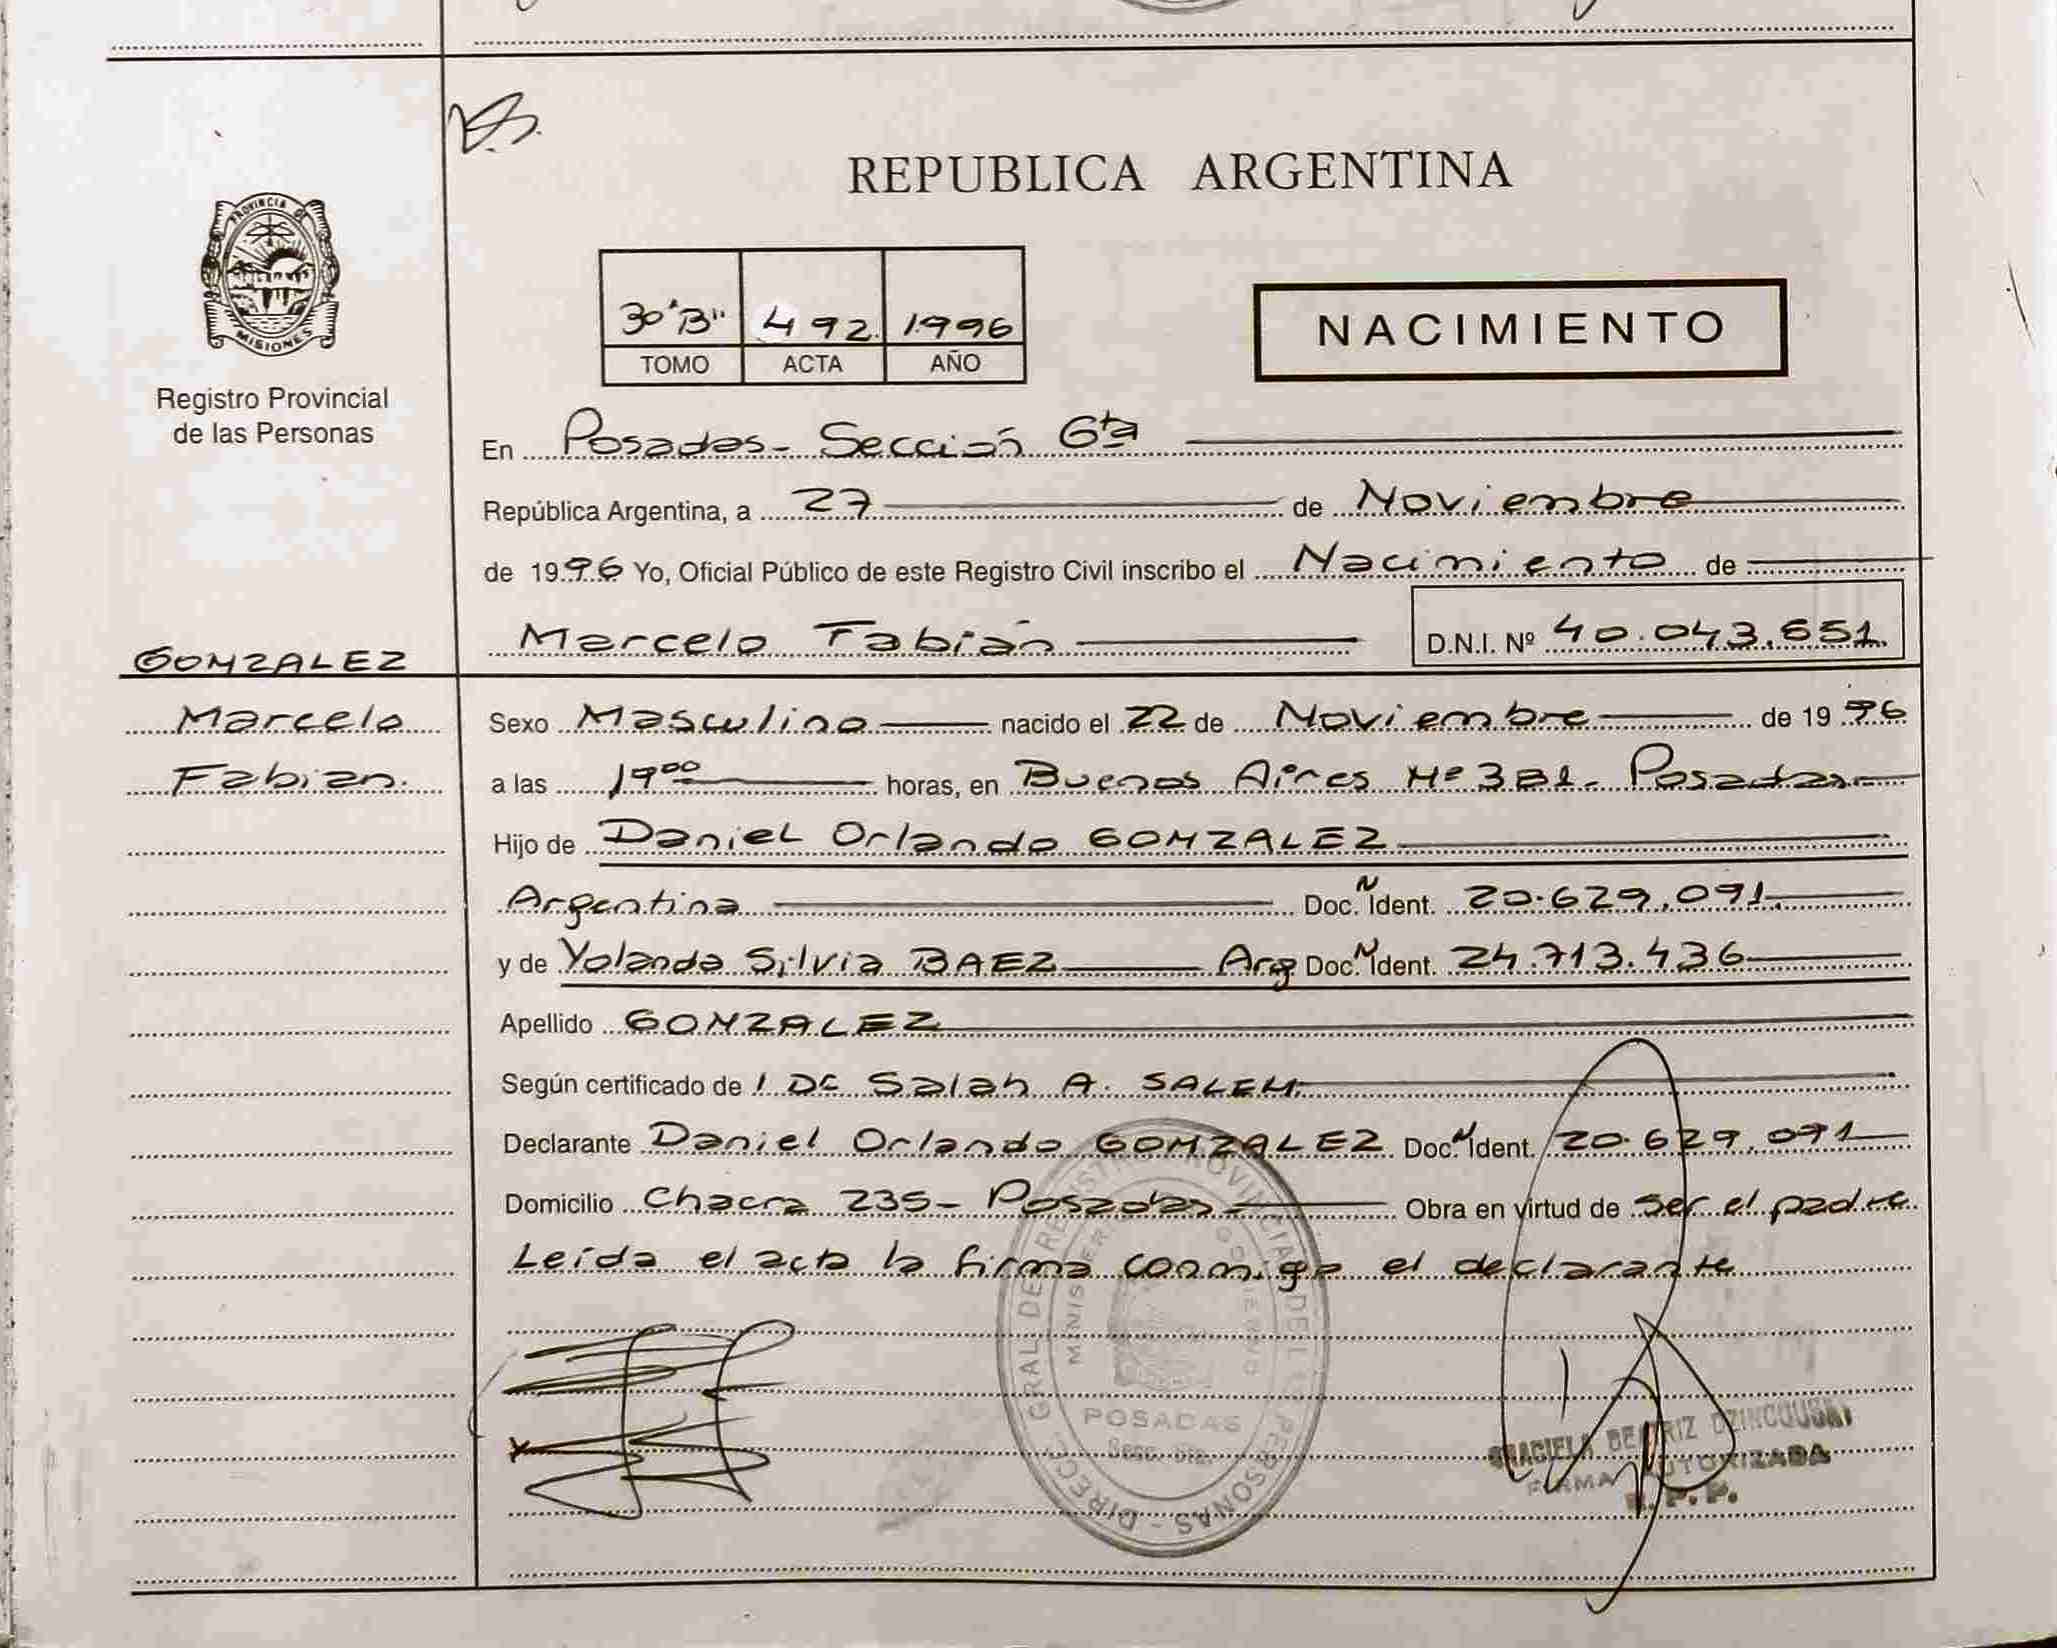 REPUBLICA ARGENTINA
PROVINCIA DE
MISIONES
Registro Provincial
de las Personas
30 "B" 492 1996
TOMO ACTA AÑO
NACIMIENTO
En Posadas - Sección 6ta
República Argentina, a 27 de Noviembre
de 1996 Yo, Oficial Público de este Registro Civil inscribo el Nacimiento de
Marcelo Fabián D.N.I. Nº 40.043.651.
GONZALEZ
Marcelo
Fabian.
Sexo Masculino nacido el 22 de Noviembre de 1996
a las 19 00 horas, en Buenos Aires Nº 381 - Posadas
Hijo de Daniel Orlando GONZALEZ
Argentina Doc. N Ident. 20.629.091.
y de Yolanda Silvia BAEZ Arg Doc. N Ident. 24.713.436
Apellido GONZALEZ
Según certificado de Dr Salah A. SALEM.
Declarante Daniel Orlando GONZALEZ Doc. N Ident. 20.629.091
Domicilio Chacra 235 - Posadas Obra en virtud de ser el padre
Leída el acta la firma conmigo el declarante
DIRECC. GRAL DE REGISTRO PROVINCIAL DE LAS PERSONAS
POSADAS
GRACIELA BEATRIZ
FIRMA AUTORIZADA
R. P. P.